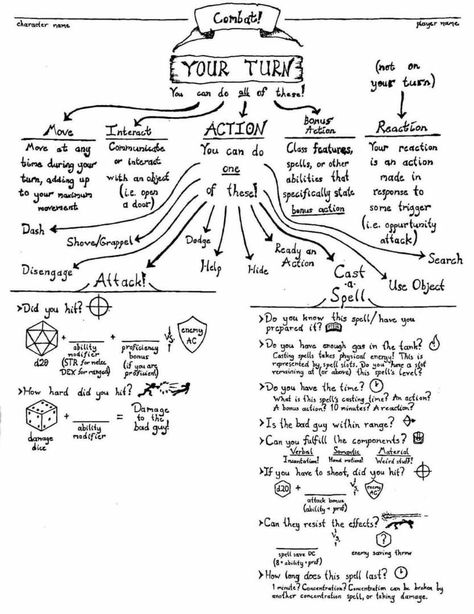 character name
Combat!
player name
YOUR TURN
You can do all of these!
(not on
your turn)
Move
Move at any
time during your
turn, adding up
to your maximum
movement
Interact
Communicate
or interact
with an object
(i.e. open
a door)
ACTION
You can do
one
of these!
Bonus
Action
Class features,
spells, or other
abilities that
specifically state
bonus action
Reaction
Your reaction
is an action
made in
response to
some trigger
(i.e. oppurtunity
attack)
Dash
Shove/Grappel
Disengage
Dodge
Help
Hide
Ready an
Action
Search
Use Object
Attack!
Did you hit?
d20
+
ability
modifier
(STR for melee
DEX for ranged)
+
proficiency
bonus
(if you are
proficient)
vs
enemy
AC
How hard did you hit?
damage
dice
+
ability
modifier
=
Damage
to the
bad guy!
Cast
-a-
Spell
Do you know this spell/have you
prepared it?
Do you have enough gas in the tank?
Casting spells takes physical energy! This is
represented by spell slots. Do you have a slot
remaining at (or above) this spell's level?
Do you have the time?
What is this spell's casting time? An action?
A bonus action? 10 minutes? A reaction?
Is the bad guy within range?
Can you fulfill the components?
Verbal Somatic Material
Incantation! Hand motions! Weird stuff!
If you have to shoot, did you hit?
d20
+
attack bonus
(ability + prof)
vs
enemy
AC
Can they resist the effects?
spell save DC
(8 + ability + prof)
vs
?
enemy saving throw
How long does this spell last?
1 minute? Concentration? Concentration can be broken by
another concentration spell, or taking damage.